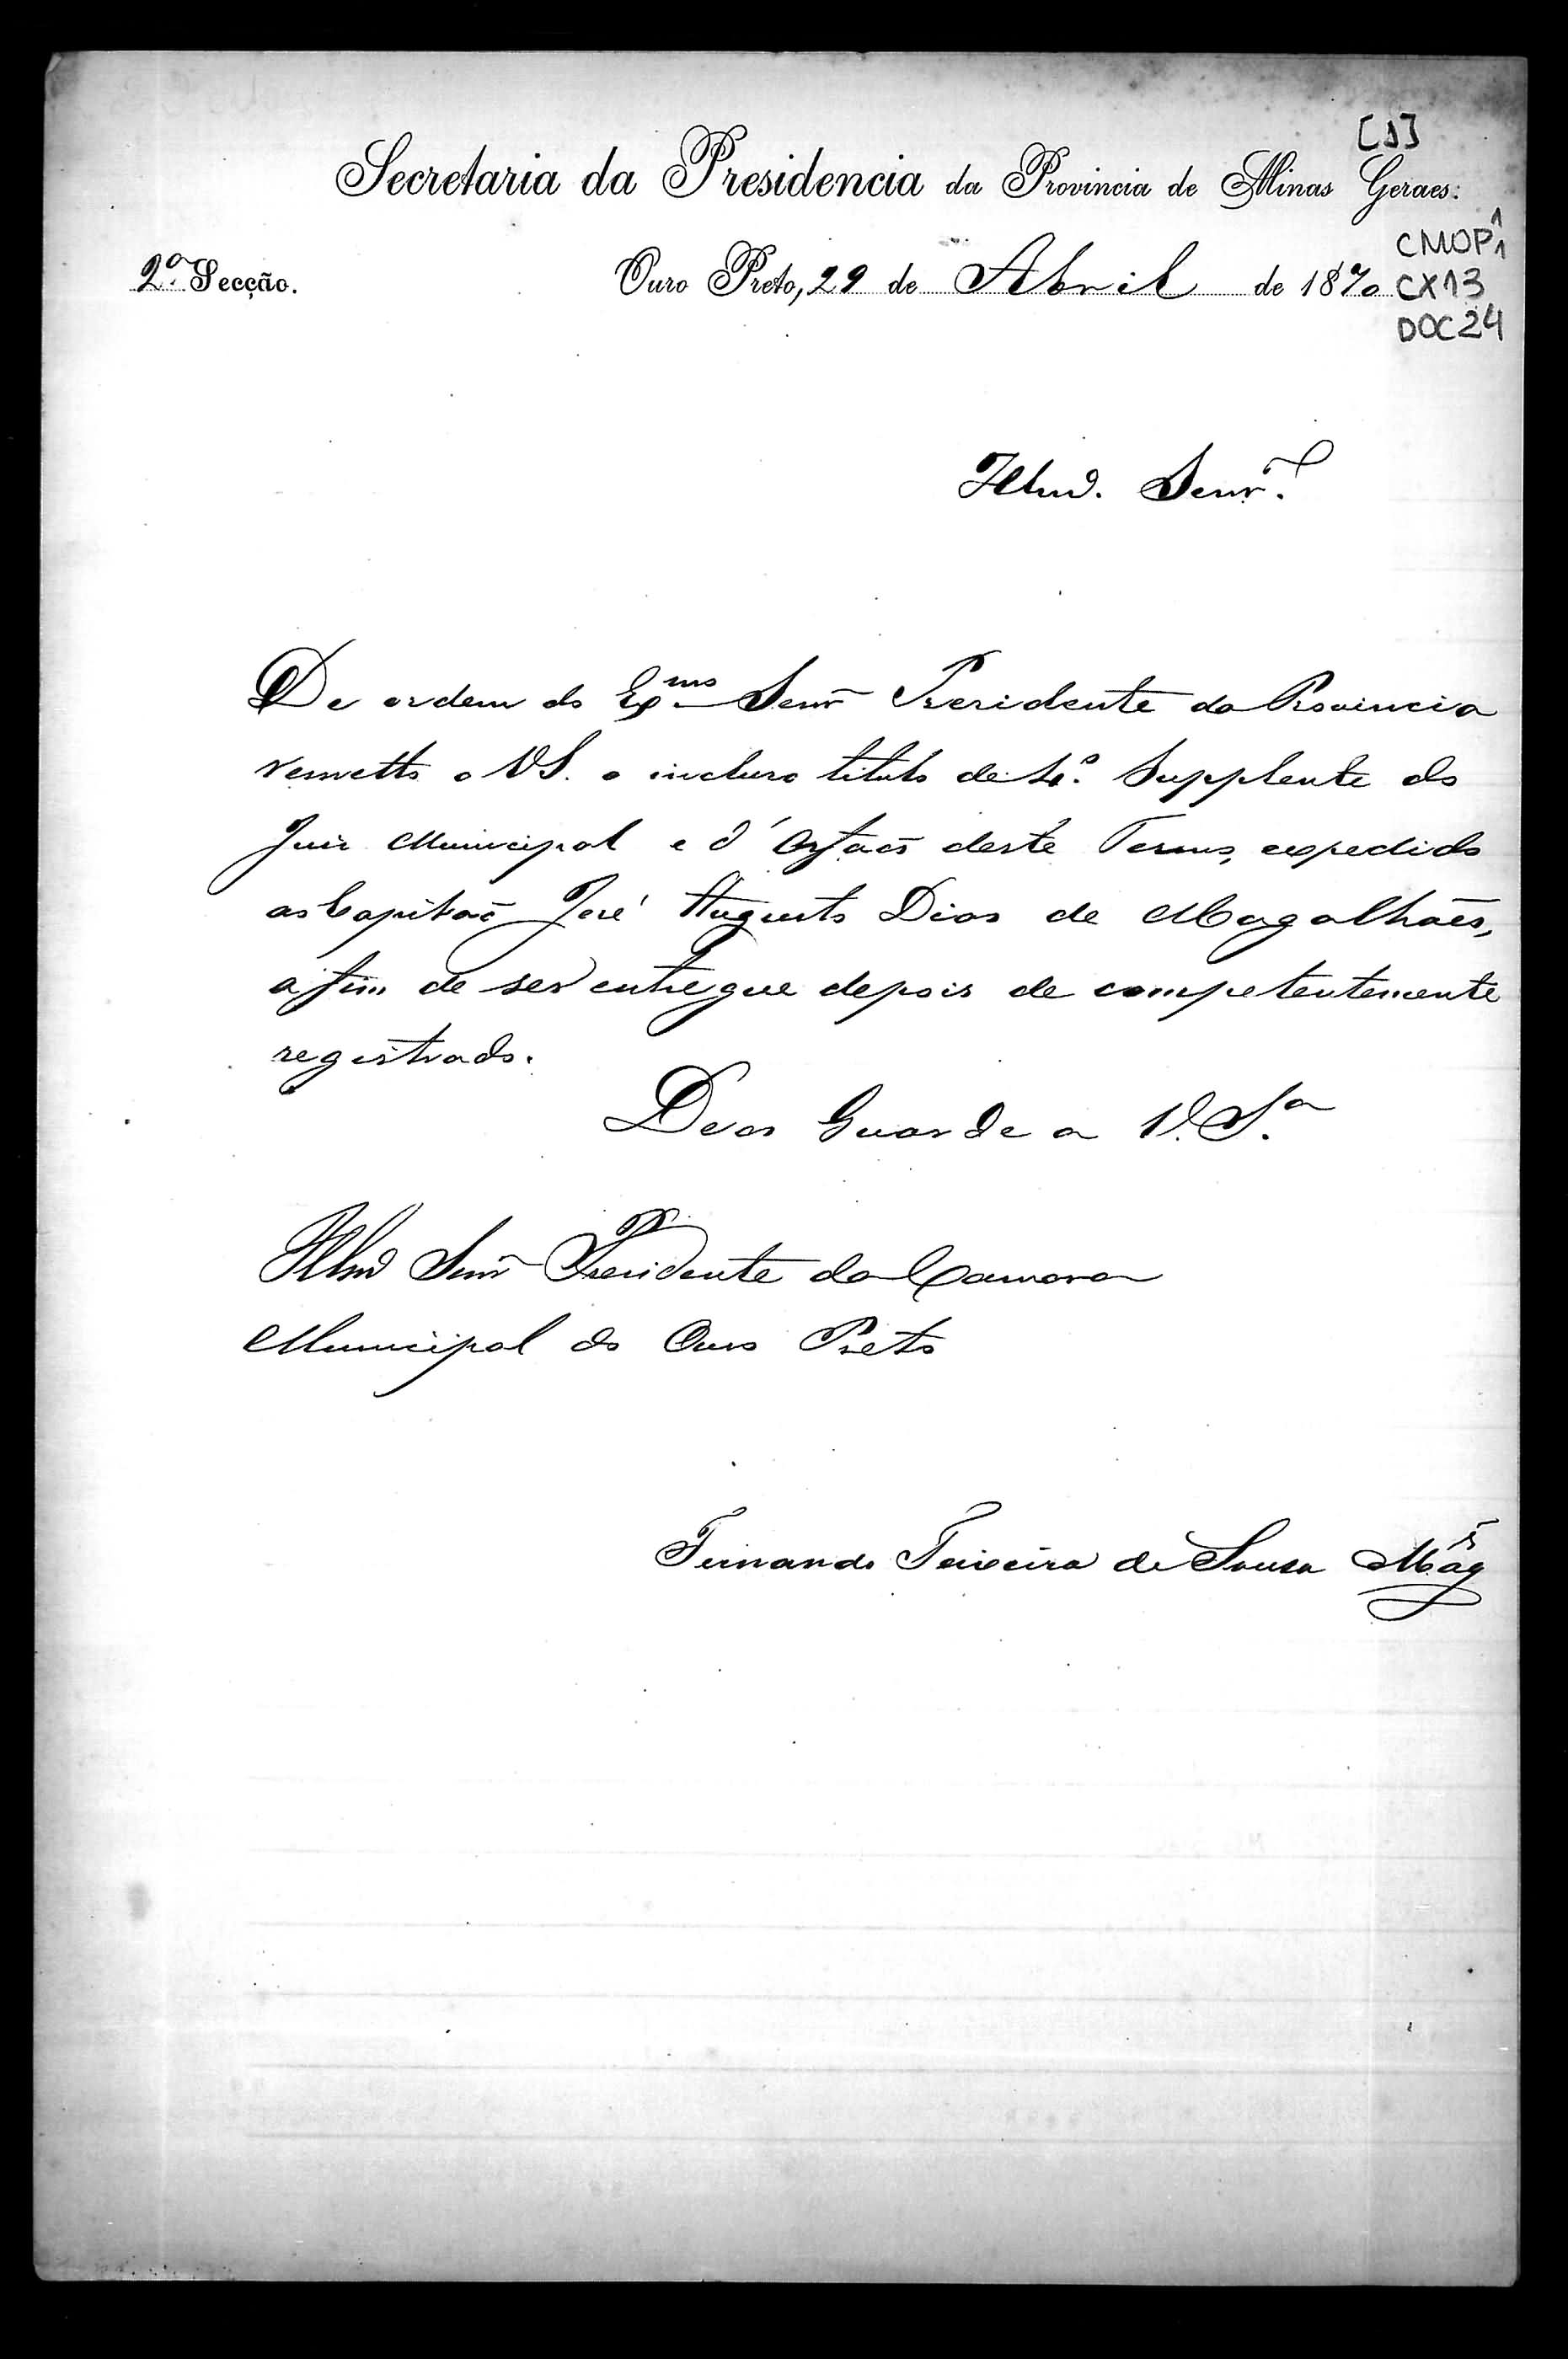 [1]
Secretaria da Presidencia da Provincia de Minas Geraes:
CMOP 1
1
2ª Secção.
Ouro Preto, 29 de Abril de 1870
CX13
DOC24
Illmº. Senr.
De ordem do Exmo Senr Presidente da Provincia
remetto a VS. o incluso titulo de 4º. Supplente do
Juiz Municipal e d'Orfaõs deste Termo, expedido
ao Capitaõ José Augusto Dias de Magalhães,
a fim de ser entregue depois de competentemente
registrado.
Deos Guarde a V. Sª.
Illmº Senr Presidente da Camara
Municipal do Ouro Preto
Fernando Teixeira de Sousa Mag